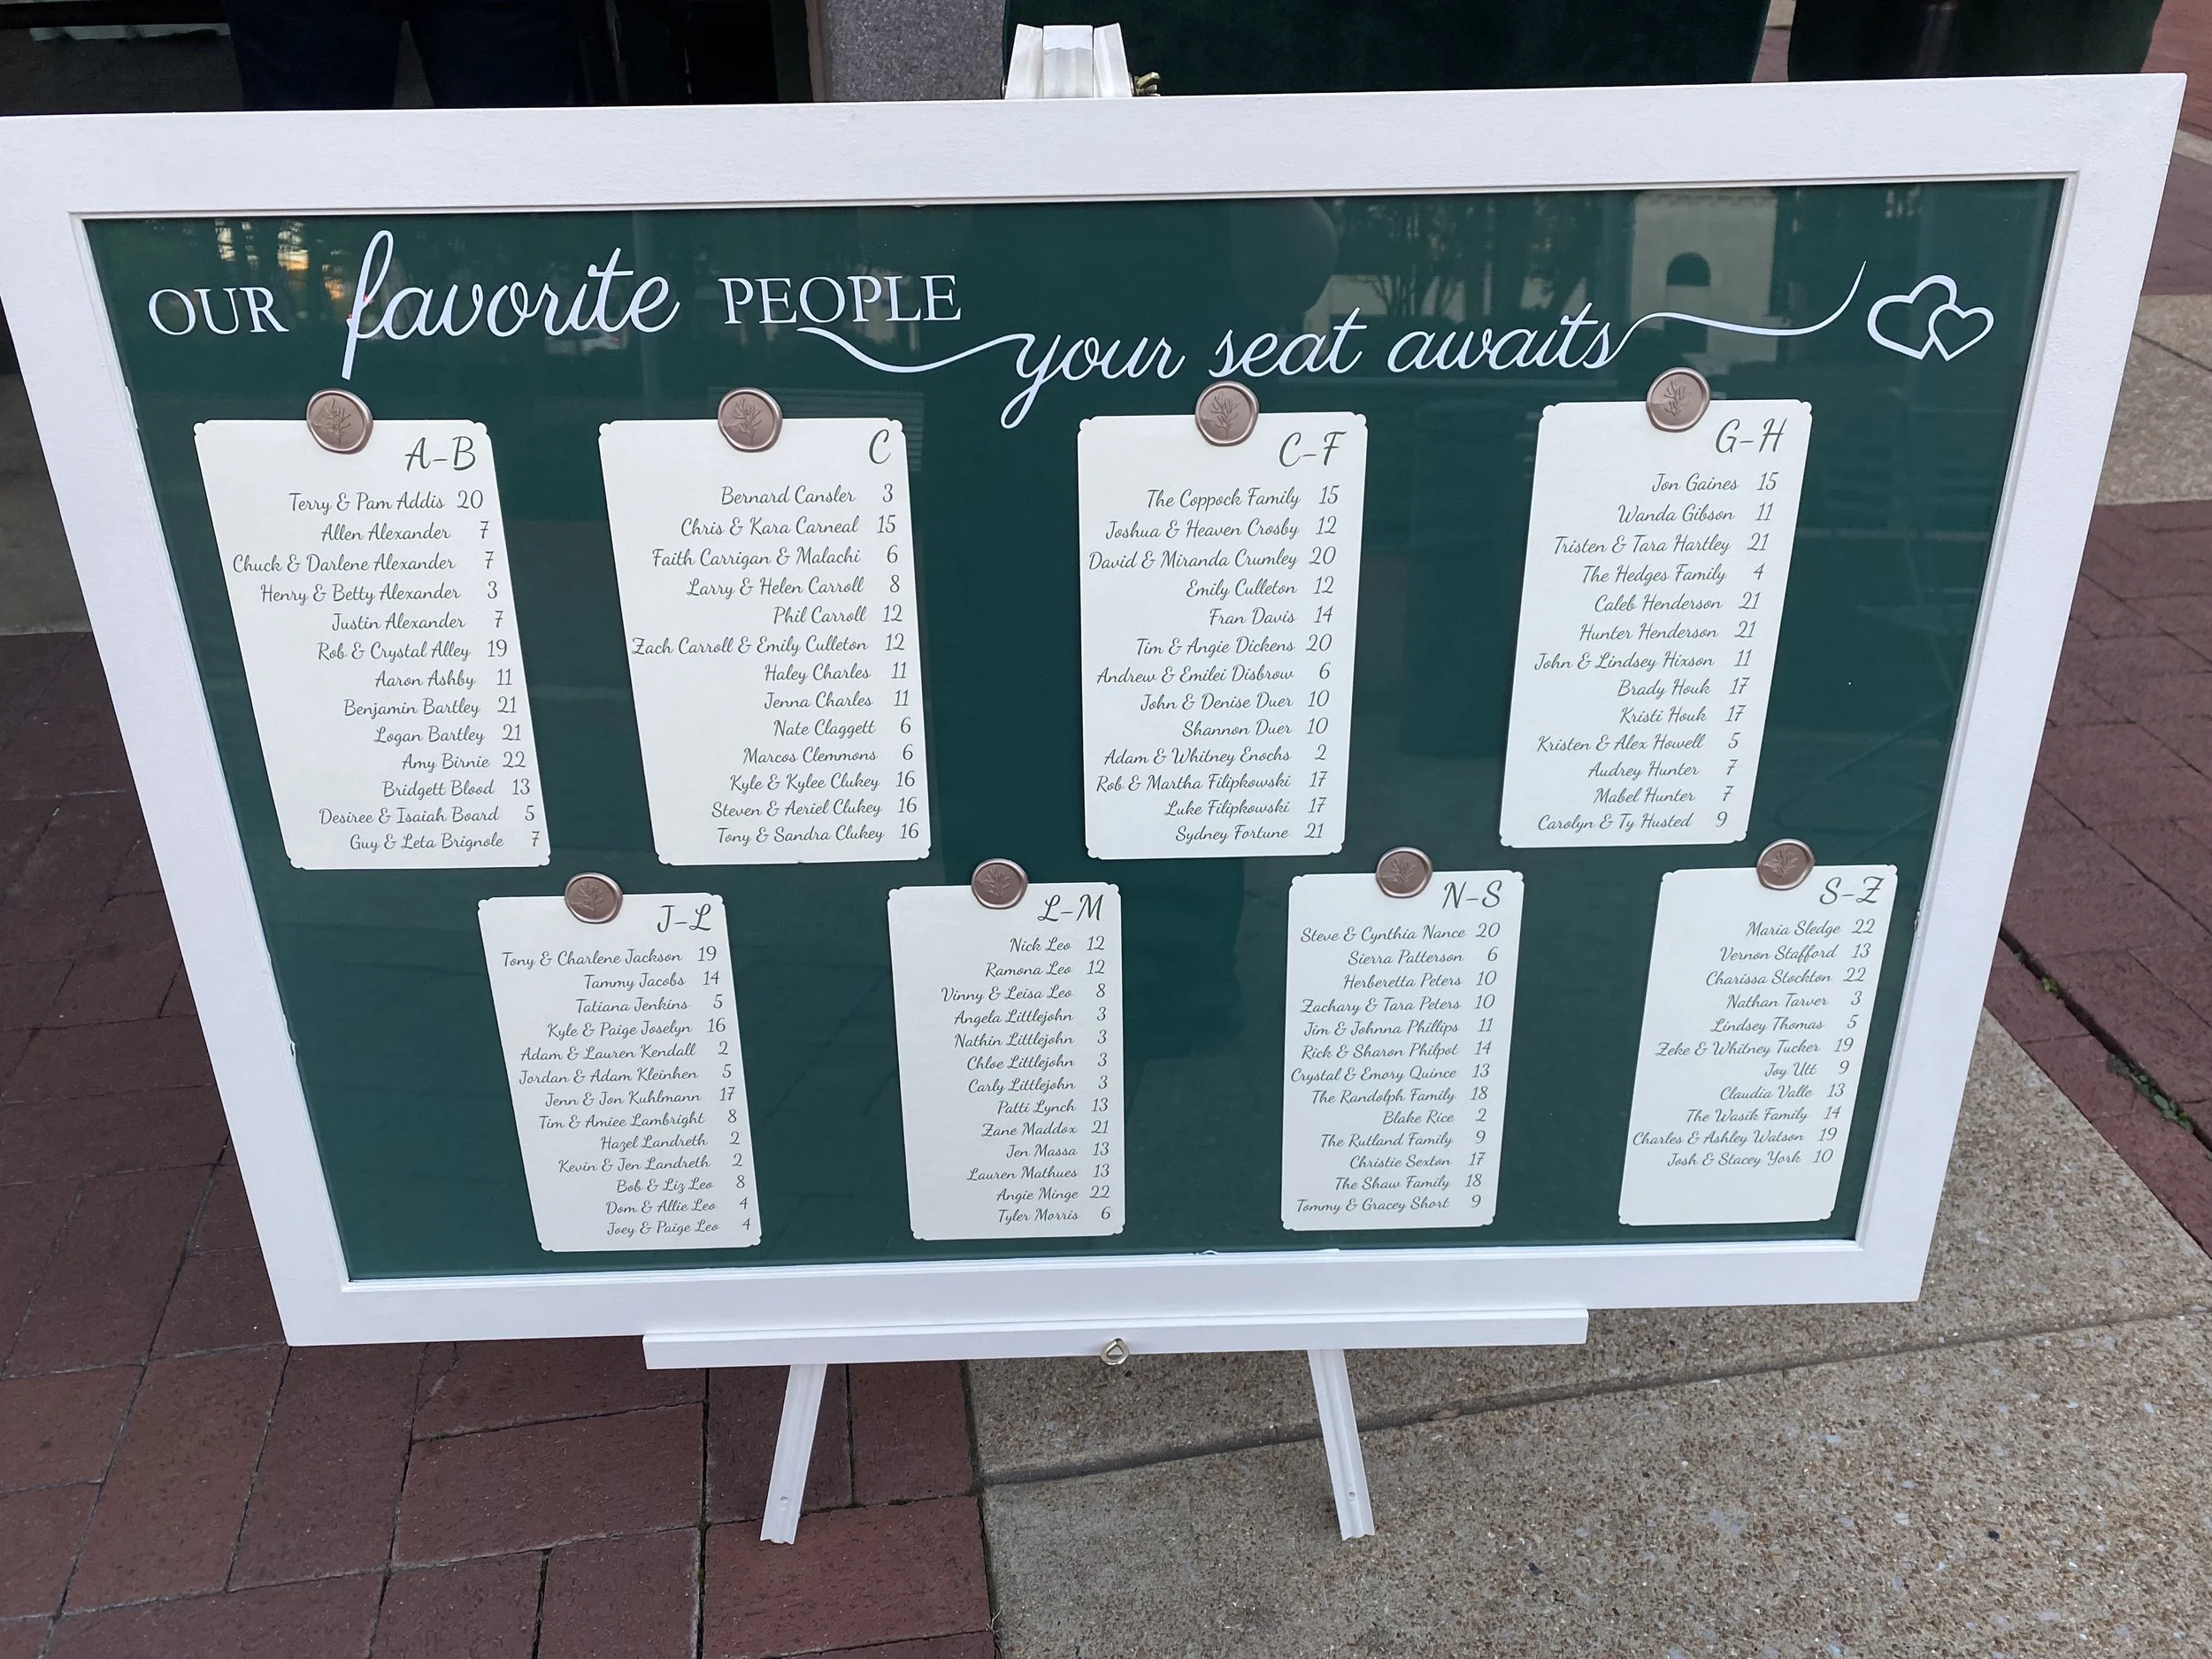 OUR favorite PEOPLE
your seat awaits
A-B
Terry & Pam Addis 20
Allen Alexander 7
Chuck & Darlene Alexander 7
Henry & Betty Alexander 3
Justin Alexander 7
Rob & Crystal Alley 19
Aaron Ashby 11
Benjamin Bartley 21
Logan Bartley 21
Amy Birnie 22
Bridgett Blood 13
Desiree & Isaiah Board 5
Guy & Leta Brignole 7
C
Bernard Cansler 3
Chris & Kara Carneal 15
Faith Carrigan & Malachi 6
Larry & Helen Carroll 8
Phil Carroll 12
Zach Carroll & Emily Culleton 12
Haley Charles 11
Jenna Charles 11
Nate Claggett 6
Marcos Clemmons 6
Kyle & Kylee Clukey 16
Steven & Aeriel Clukey 16
Tony & Sandra Clukey 16
C-F
The Coppock Family 15
Joshua & Heaven Crosby 12
David & Miranda Crumley 20
Emily Culleton 12
Fran Davis 14
Tim & Angie Dickens 20
Andrew & Emilei Disbrow 6
John & Denise Duer 10
Shannon Duer 10
Adam & Whitney Enochs 2
Rob & Martha Filipkowski 17
Luke Filipkowski 17
Sydney Fortune 21
G-H
Jon Gaines 15
Wanda Gibson 11
Tristen & Tara Hartley 21
The Hedges Family 4
Caleb Henderson 21
Hunter Henderson 21
John & Lindsey Hixson 11
Brady Houk 17
Kristi Houk 17
Kristen & Alex Howell 5
Audrey Hunter 7
Mabel Hunter 7
Carolyn & Ty Husted 9
J-L
Tony & Charlene Jackson 19
Tammy Jacobs 14
Tatiana Jenkins 5
Kyle & Paige Joselyn 16
Adam & Lauren Kendall 2
Jordan & Adam Kleinhen 5
Jenn & Jon Kuhlmann 17
Tim & Amiee Lambright 8
Hazel Landreth 2
Kevin & Jen Landreth 2
Bob & Liz Leo 8
Dom & Allie Leo 4
Joey & Paige Leo 4
L-M
Nick Leo 12
Ramona Leo 12
Vinny & Leisa Leo 8
Angela Littlejohn 3
Nathin Littlejohn 3
Chloe Littlejohn 3
Carly Littlejohn 3
Patti Lynch 13
Zane Maddox 21
Jen Massa 13
Lauren Mathues 13
Angie Minge 22
Tyler Morris 6
N-S
Steve & Cynthia Nance 20
Sierra Patterson 6
Herberetta Peters 10
Zachary & Tara Peters 10
Jim & Johnna Phillips 11
Rick & Sharon Philpot 14
Crystal & Emory Quince 13
The Randolph Family 18
Blake Rice 2
The Rutland Family 9
Christie Sexton 17
The Shaw Family 18
Tommy & Gracey Short 9
S-Z
Maria Sledge 22
Vernon Stafford 13
Charissa Stockton 22
Nathan Tarver 3
Lindsey Thomas 5
Zeke & Whitney Tucker 19
Joy Utt 9
Claudia Valle 13
The Wasik Family 14
Charles & Ashley Watson 19
Josh & Stacey York 10